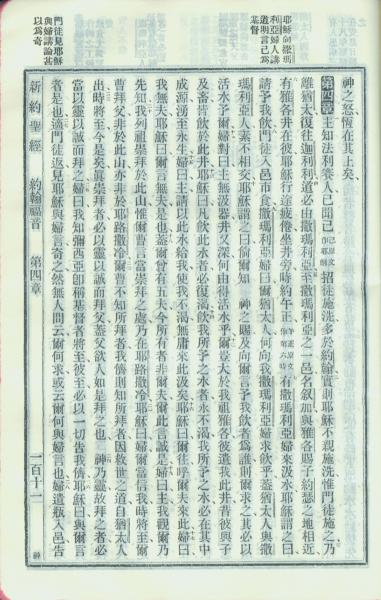 耶穌向撒瑪
利亞婦人講
道明言己為
基督
神之怒恆在其上矣
第四章 主知法利賽人已聞己己原文作耶穌招徒施洗多於約翰實則耶穌不親施洗惟門徒施之乃
離猶太復往迦利利道必由撒瑪利亞至撒瑪利亞之一邑名叙加與雅各賜子約瑟之地相近
有雅各井在彼耶穌行途疲倦坐井旁時約午正午正原文作第六時有撒瑪利亞婦來汲水耶穌謂之曰
請予我飲門徒入邑市食撒瑪利亞婦曰爾猶太人何向我撒瑪利亞婦求飲乎蓋猶太人與撒
瑪利亞人素不相交耶穌謂之曰倘爾知 神之賜及向爾言予我飲者為誰則爾求之其必以
活水予爾婦對曰主無汲器井又深何由得活水乎爾豈大於我祖雅各彼遺我此井昔彼與子
及畜皆飲於此井耶穌曰凡飲此水者必復渴飲我所予之水者永不渴我所予之水必在其中
成源湧至永生婦曰主請以此水給我使我不渴無庸來此汲矣耶穌曰爾往呼爾夫來此婦曰
我無夫耶穌曰爾言無夫是也蓋爾曾有五夫今所有者非爾夫爾此言誠是婦曰主我觀爾乃
先知我列祖崇拜於此山惟爾曹言當崇拜之處乃在耶路撒冷耶穌曰婦爾當信我時將至爾
曹拜父非於此山亦非於耶路撒冷爾曹不知所拜者我儕則知所拜者因救世之道自猶太人
出時將至今是矣眞崇拜者必以靈以誠而拜父蓋父欲人如是拜之也 神乃靈故拜之者必
當以靈以誠而拜之婦曰我知彌西亞卽稱基督者將至彼至必以一切告我儕耶穌曰與爾言
者是也適門徒返見耶穌與婦言奇之然無人問云爾何求或云爾何與婦言也婦遺瓶入邑告
門徒見耶穌
與婦講論甚
以為奇
新約聖經 約翰福音 第四章 一百十二